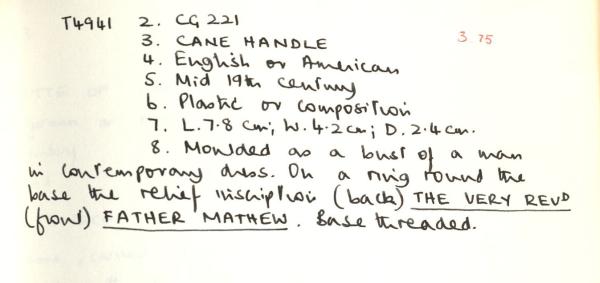 T4941 2. CG 221
3. CANE HANDLE 3.75
4. English or American
5. Mid 19th century
6. Plastic or composition
7. L. 7.8 cm; W. 4.2 cm; D. 2.4 cm.
8. Moulded as a bust of a man
in contemporary dress. On a ring round the
base the relief inscription (back) THE VERY REVD
(front) FATHER MATHEW. Base threaded.